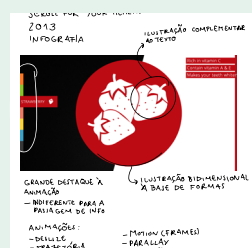 SCROLL FOR YOUR HEALTH
2013
INFOGRAFIA
ILUSTRAÇÃO COMPLEMENTAR
AO TEXTO
Rich in vitamin C
Contain vitamin A & E
Makes your teeth whiter
STRAWBERRY
GRANDE DESTAQUE À
ANIMAÇÃO
- INDIFERENTE PARA A
PASSAGEM DE INFO
ILUSTRAÇÃO BIDIMENSIONAL
À BASE DE FORMAS
ANIMAÇÕES:
- DESLIZE
- TRAJETÓRIA
- MOTION (FRAMES)
- PARALLAX